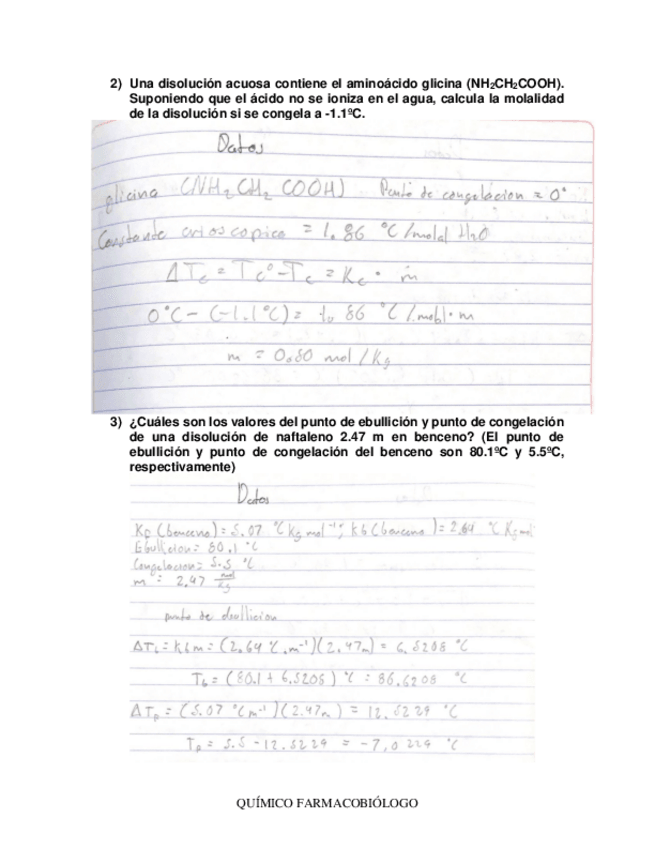 2) Una disolución acuosa contiene el aminoácido glicina (NH₂CH₂COOH).
Suponiendo que el ácido no se ioniza en el agua, calcula la molalidad
de la disolución si se congela a -1.1ºC.
Datos
glicina (NH₂ CH₂ COOH) Punto de congelacion = 0°
Constante crioscopica = 1.86 °C/molal H₂O
ΔTc = Tc° - Tc = Kc · m
0°C - (-1.1°C) = 1.86 °C/molal · m
m = 0.80 mol/Kg
3) ¿Cuáles son los valores del punto de ebullición y punto de congelación
de una disolución de naftaleno 2.47 m en benceno? (El punto de
ebullición y punto de congelación del benceno son 80.1ºC y 5.5ºC,
respectivamente)
Datos
Kp (benceno) = 5.07 °C kg mol⁻¹; kb (benceno) = 2.64 °C Kg mol
Ebullicion = 80.1 °C
Congelacion = 5.5 °C
m = 2.47 mol/Kg
punto de ebullicion
ΔTb = Kb m = (2.64 °C m⁻¹)(2.47m) = 6.5208 °C
Tb = (80.1 + 6.5208) °C = 86.6208 °C
ΔTp = (5.07 °C m⁻¹)(2.47m) = 12.5229 °C
Tp = 5.5 - 12.5229 = -7.0229 °C
QUÍMICO FARMACOBIÓLOGO